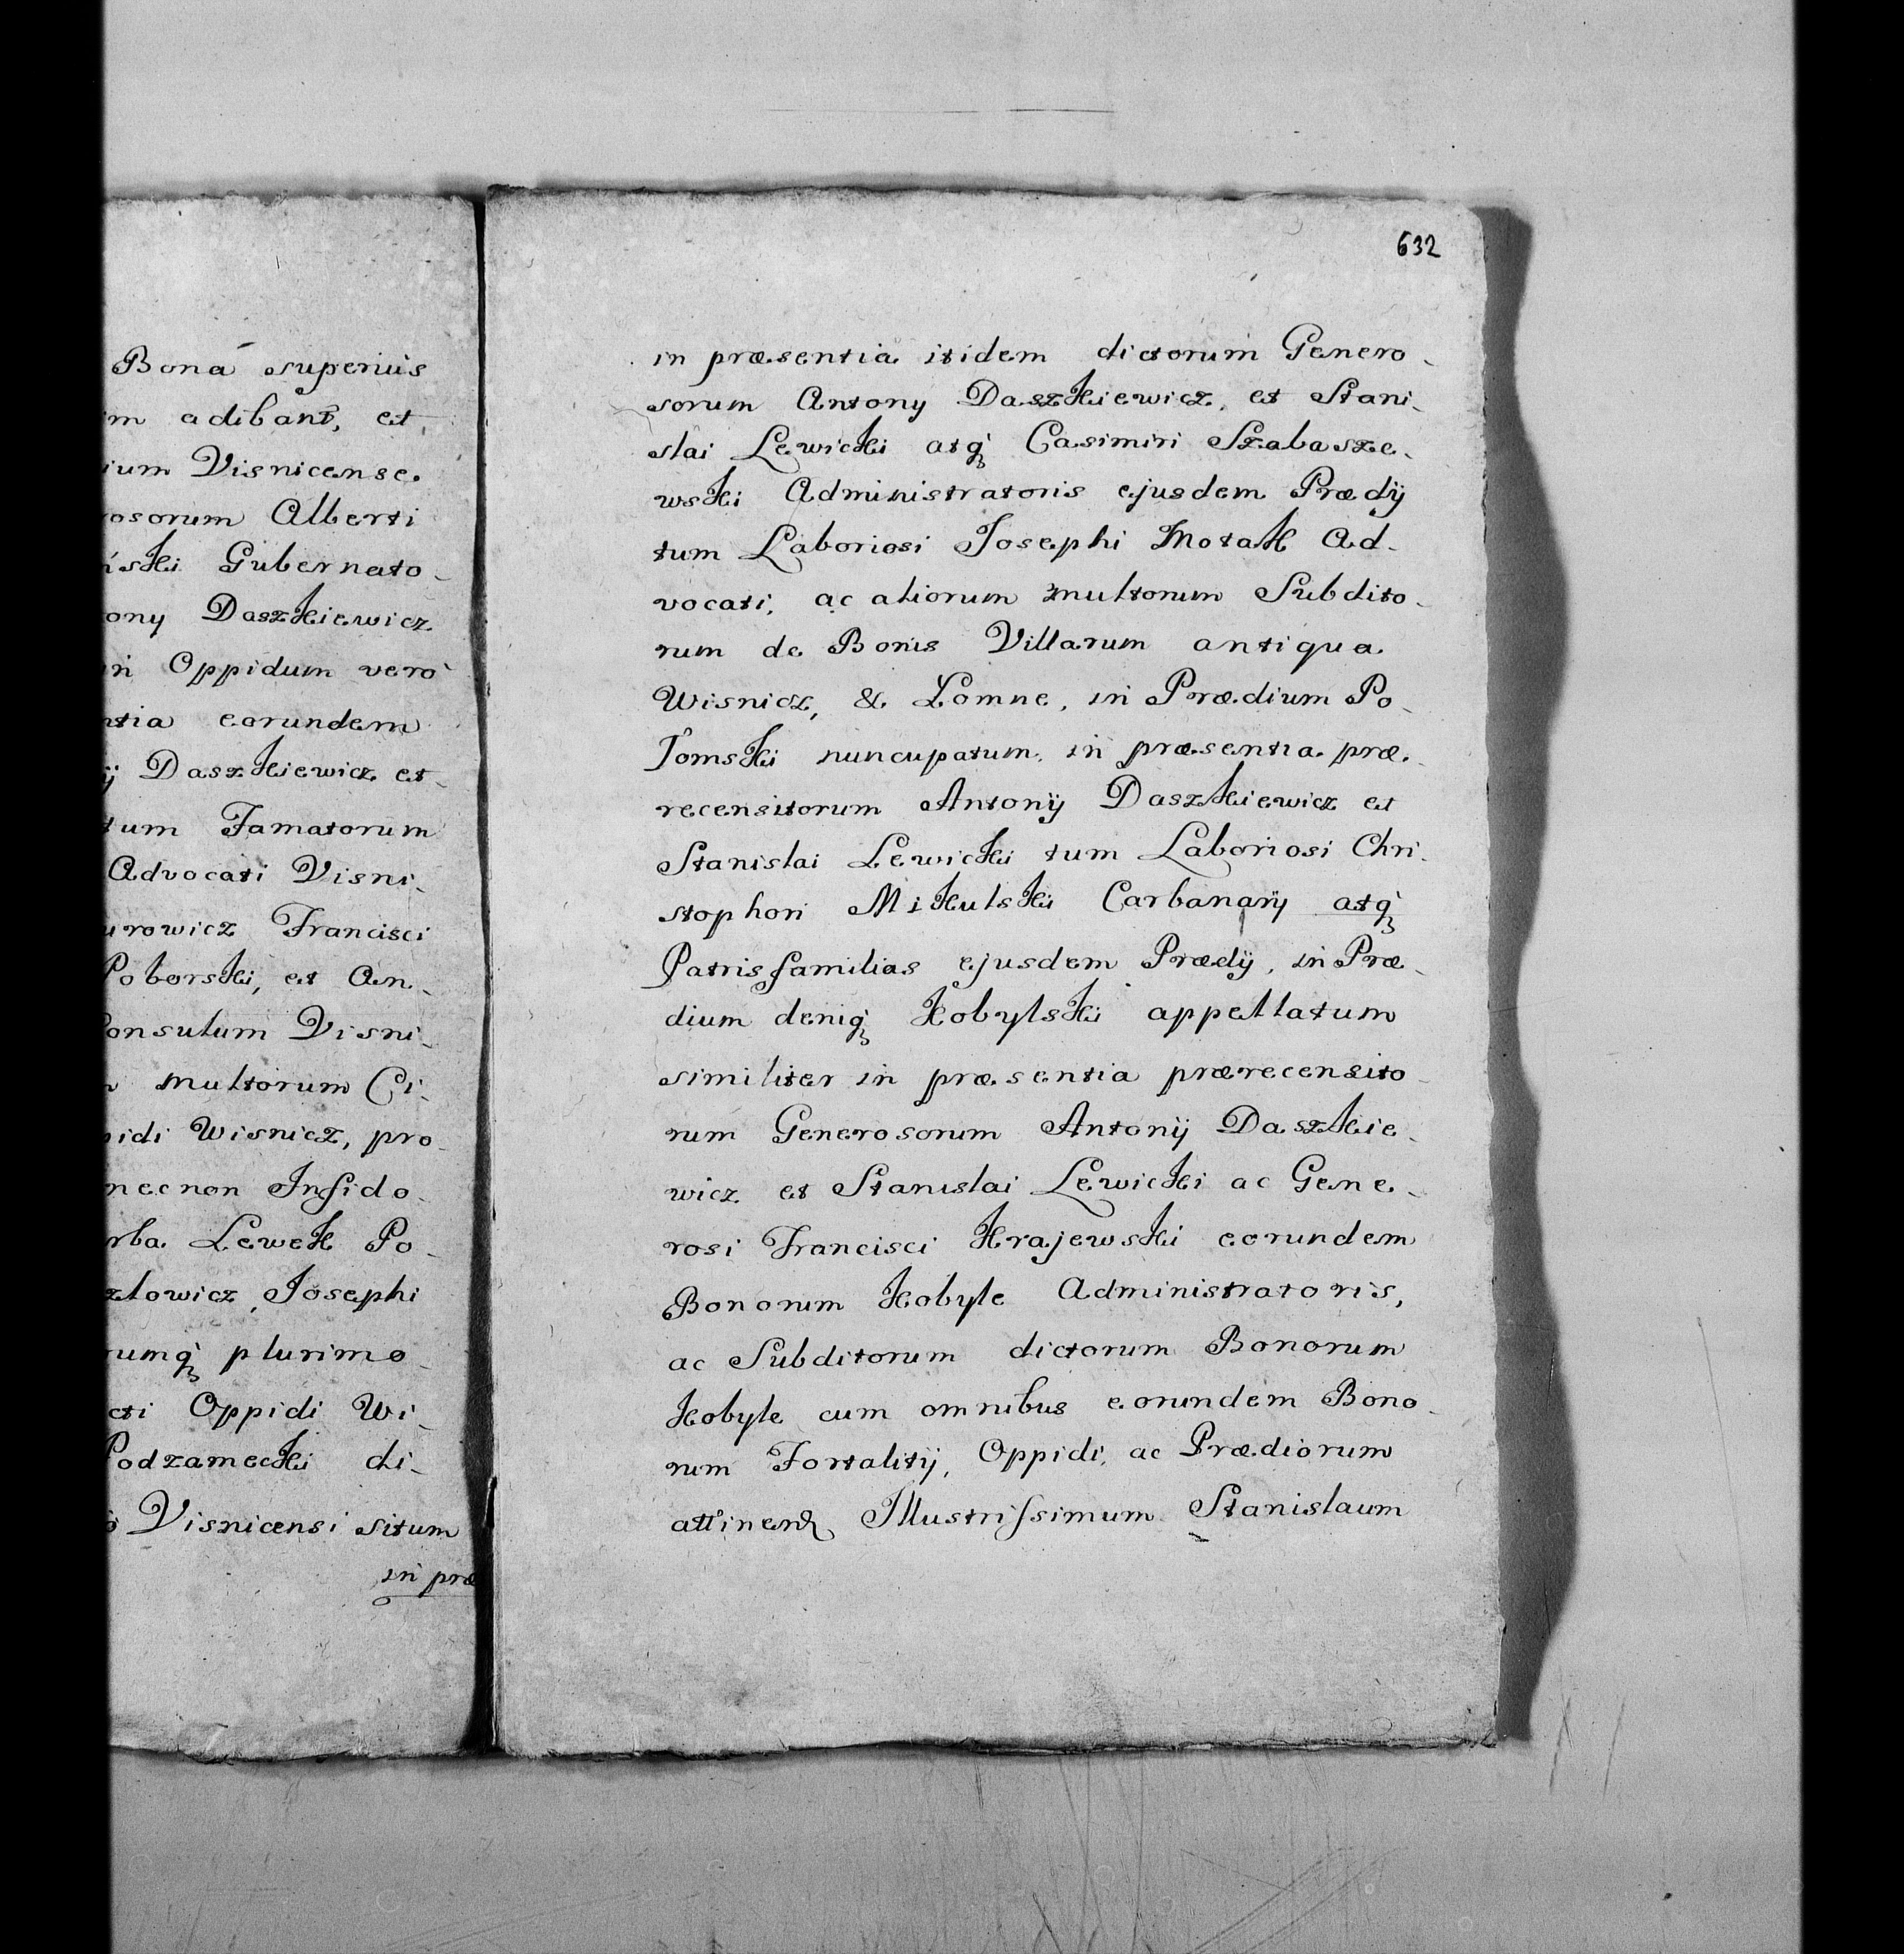 Bona superius
adibant, et
Visnicense
Alberti
Gubernato-
Daszkiewicz
Oppidum vero
eorundem
Daszkiewicz et
Famatorum
Advocati Visni-
Francisci
Poborski, et An-
Consulum Visni-
multorum Ci-
Wisnicz, pro-
necnon Infido-
Lewek Po-
Josephi
plurimo-
Oppidi Wi-
Podzamecki di-
Visnicensi situm
in præ
632
in præsentia itidem dictorum Genero-
sorum Antony Daszkiewicz, et Stani-
slai Lewicki atq₃ Casimiri Szabasze-
wski Administratoris ejusdem Prædij
tum Laboriosi Josephi Motak Ad-
vocati, ac aliorum multorum Subdito-
rum de Bonis Villarum antiqua
Wisnicz, & Łomne, in Prædium Po-
łomski nuncupatum, in præsentia præ-
recensitorum Antonij Daszkiewicz et
Stanislai Lewicki tum Laboriosi Chri-
stophori Mikulski Carbonarij atq₃
Patrisfamilias ejusdem Prædij, in Præ-
dium deniq₃ Kobylski appellatum
similiter in præsentia prærecensito-
rum Generosorum Antonij Daszkie-
wicz et Stanislai Lewicki ac Gene-
rosi Francisci Krajewski eorundem
Bonorum Kobyle Administratoris,
ac Subditorum dictorum Bonorum
Kobyle cum omnibus eorundem Bono-
rum Fortalitij, Oppidi, ac Prædiorum
attinen Illustrissimum Stanislaum